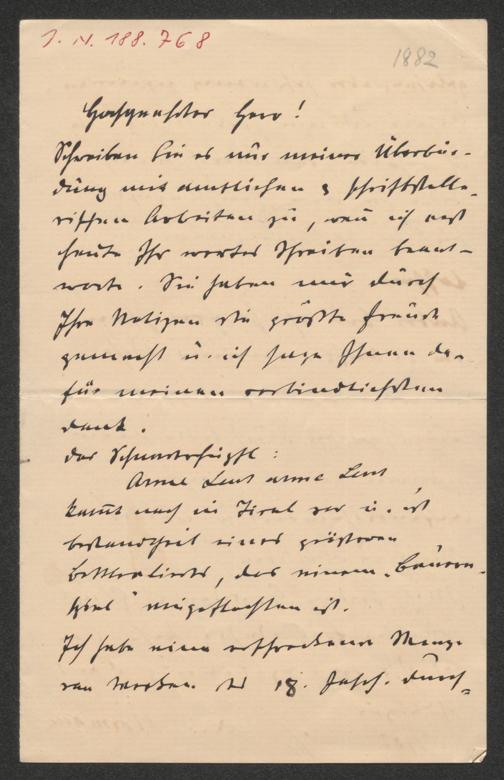 J. N. 188.768
1882
Hochgeehrter Herr!
Schreiben Sie es nur meiner Überbür-
dung mit amtlichen & schriftstelle-
rischen Arbeiten zu, wenn ich erst
heute Ihr wertes Schreiben beant-
worte. Sie haben mir durch
Ihre Notizen die größte Freude
gemacht u. ich sage Ihnen da-
für meinen verbindlichsten
Dank.
Das :
Arme Leut arme Leut
kommt auch in Tirol vor u. ist
Bestandtheil eines größeren
Bettlerliedes, das einem „Bauern-
spiel" eingeflochten ist.
Ich habe eine Menge
von des 18. Jahrh. durch-